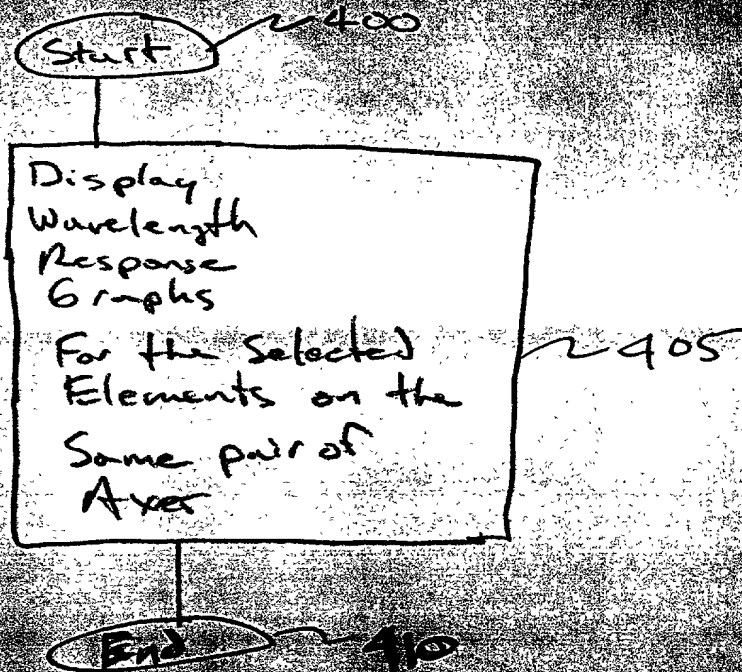 Start 400
Display
Wavelength
Response
Graphs
For the Selected
Elements on the
Same pair of
Axes
405
End 410